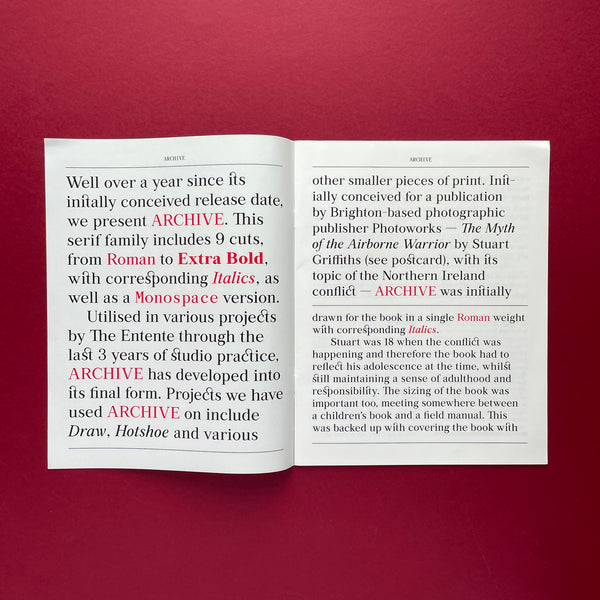 ARCHIVE
Well over a year since its
initially conceived release date,
we present ARCHIVE. This
serif family includes 9 cuts,
from Roman to Extra Bold,
with corresponding Italics, as
well as a Monospace version.
Utilised in various projects
by The Entente through the
last 3 years of studio practice,
ARCHIVE has developed into
its final form. Projects we have
used ARCHIVE on include
Draw, Hotshoe and various
ARCHIVE
other smaller pieces of print. Init-
ially conceived for a publication
by Brighton-based photographic
publisher Photoworks — The Myth
of the Airborne Warrior by Stuart
Griffiths (see postcard), with its
topic of the Northern Ireland
conflict — ARCHIVE was initially
drawn for the book in a single Roman weight
with corresponding Italics.
Stuart was 18 when the conflict was
happening and therefore the book had to
reflect his adolescence at the time, whilst
still maintaining a sense of adulthood and
responsibility. The sizing of the book was
important too, meeting somewhere between
a children's book and a field manual. This
was backed up with covering the book with